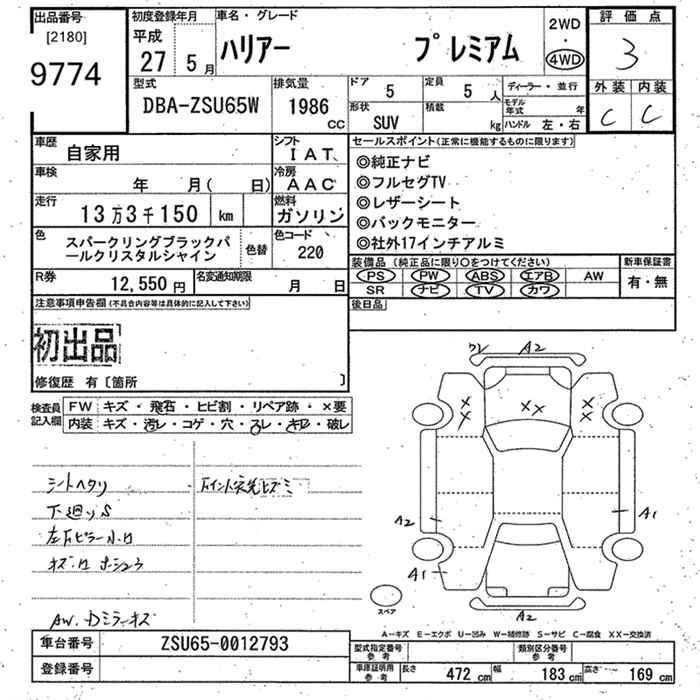 出品番号
[2180]
9774
初度登録年月
平成
27 5月
車名・グレード
ハリアー プレミアム
2WD
・
4WD
評価点
3
外装 内装
C C
型式
DBA-ZSU65W
排気量
1986
cc
ドア
5
定員
5 人
形状
SUV
積載
kg
ディーラー・並行
モデル年式 年
ハンドル 左・右
車歴
自家用
シフト
IAT
車検
年 月( 日)
冷房
AAC
走行
13万3千150 km
燃料
ガソリン
色
スパークリングブラックパ
ールクリスタルシャイン
色替
色コード
220
R券
12,550円
名変通知期限
月 日
セールスポイント(正常に機能するものに限ります)
◎純正ナビ
◎フルセグTV
◎レザーシート
◎バックモニター
◎社外17インチアルミ
装備品 (純正品に限り○をつけてください)
PS PW ABS エアB AW
SR ナビ TV カワ
新車保証書
有・無
後日品
注意事項申告欄(不具合内容等は具体的に記入して下さい)
初出品
修復歴 有〔箇所 〕
検査員
記入欄
FW キズ・飛石・ヒビ割・リペア跡・×要
内装 キズ・汚レ・コゲ・穴・スレ・キレ・破レ
シートヘタリ
下廻りS
AW.Dミラーキズ
A2
×
×
××
×
×
A2
A1
A1
A2
スペア
A-キズ E-エクボ U-凹み W-補修跡 S-サビ C-腐食 XX-交換済
車台番号 ZSU65-0012793
登録番号
型式指定番号
参考
類別区分番号
参考
車庫証明用
参考
長さ 472 cm 幅 183 cm 高さ 169 cm